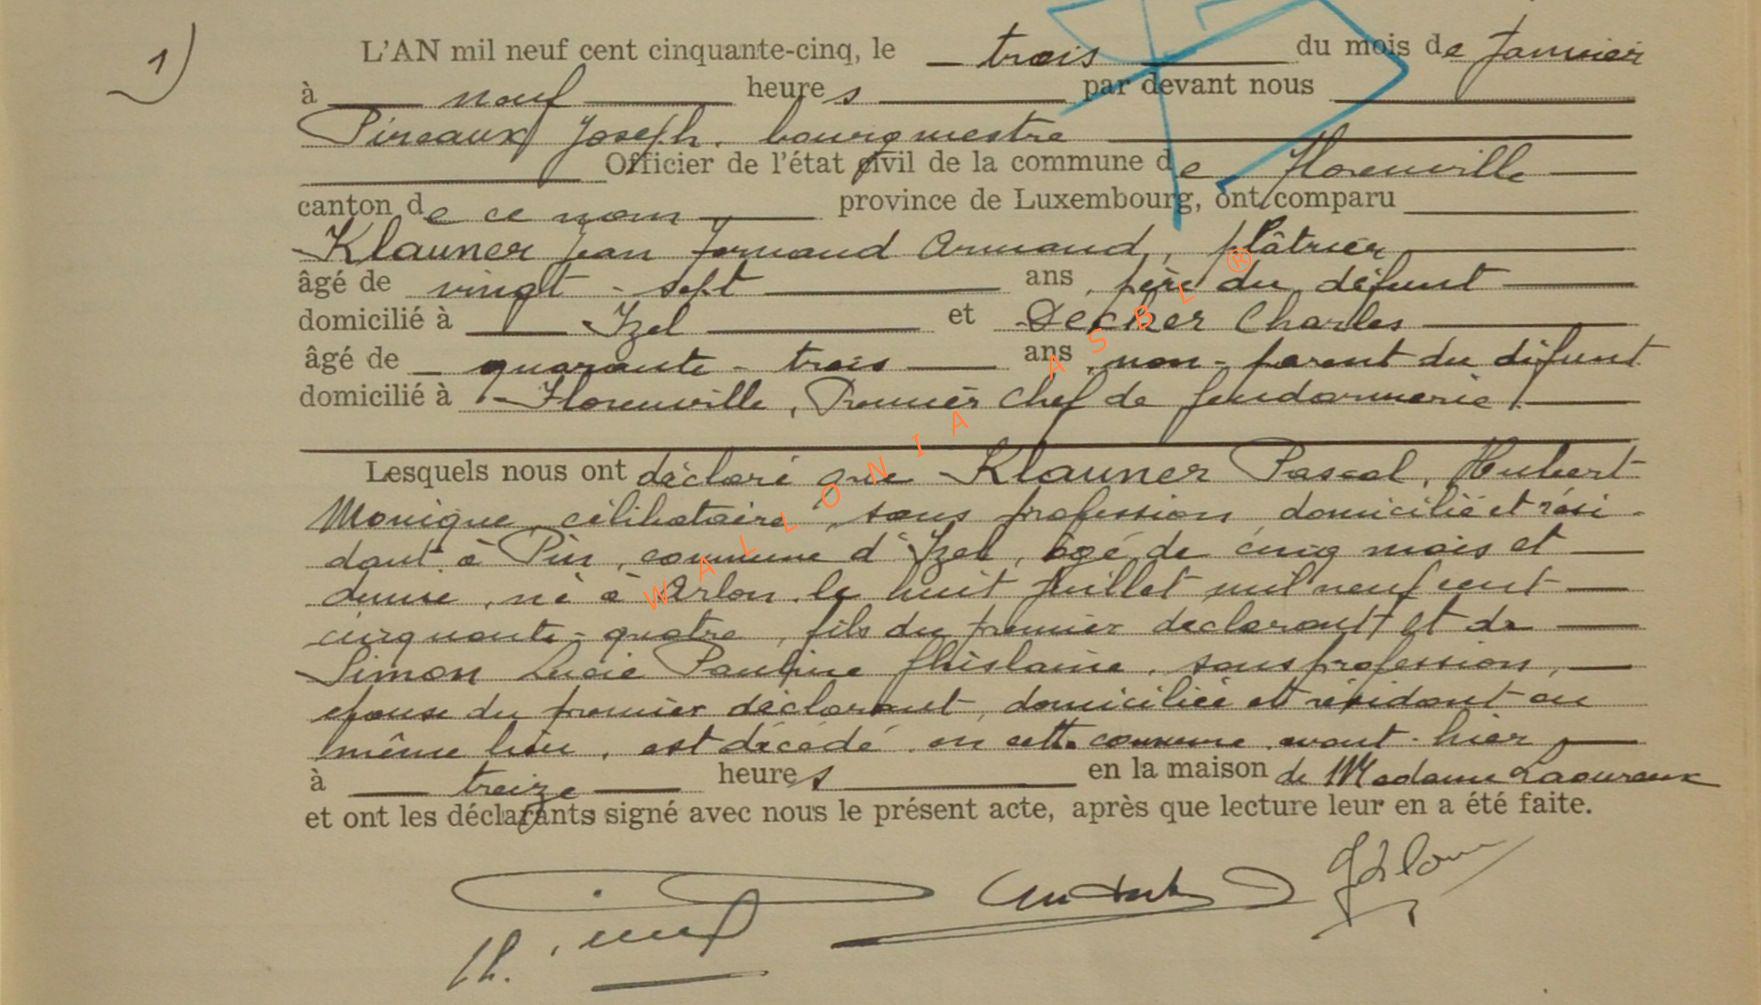 1)
L'AN mil neuf cent cinquante-cinq, le trois du mois de Janvier
à neuf heures par devant nous
Pireaux Joseph, bourgmestre
Officier de l'état civil de la commune de Florenville
canton de ce nom province de Luxembourg, ont comparu
Klauner Jean Fernand Armand, plâtrier
âgé de vingt-sept ans, père du défunt
domicilié à Izel et Decker Charles
âgé de quarante-trois ans, non-parent du défunt
domicilié à Florenville, Premier Chef de gendarmerie.
Lesquels nous ont déclaré que Klauner Pascal, Hubert
Monique, célibataire, sans profession domicilié et rési-
dant à Pin, commune d'Izel, âgé de cinq mois et
demie, né à Arlon le huit Juillet mil neuf cent
cinquante-quatre, fils du premier déclarant et de
Simon Lucie Pauline Ghislaine, sans profession,
épouse du premier déclarant, domiciliée et résidant au
même lieu, est décédé en cette commune avant-hier
à treize heures en la maison de Madame
et ont les déclarants signé avec nous le présent acte, après que lecture leur en a été faite.
WALLONIA ASBL ®